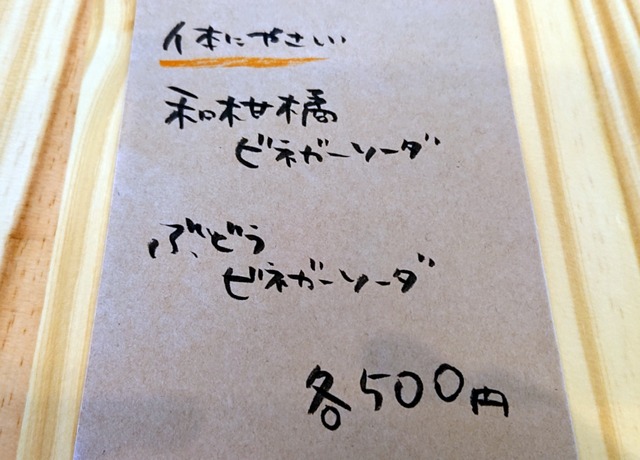 体にやさしい
和柑橘
ビネガーソーダ
ぶどう
ビネガーソーダ
各500円